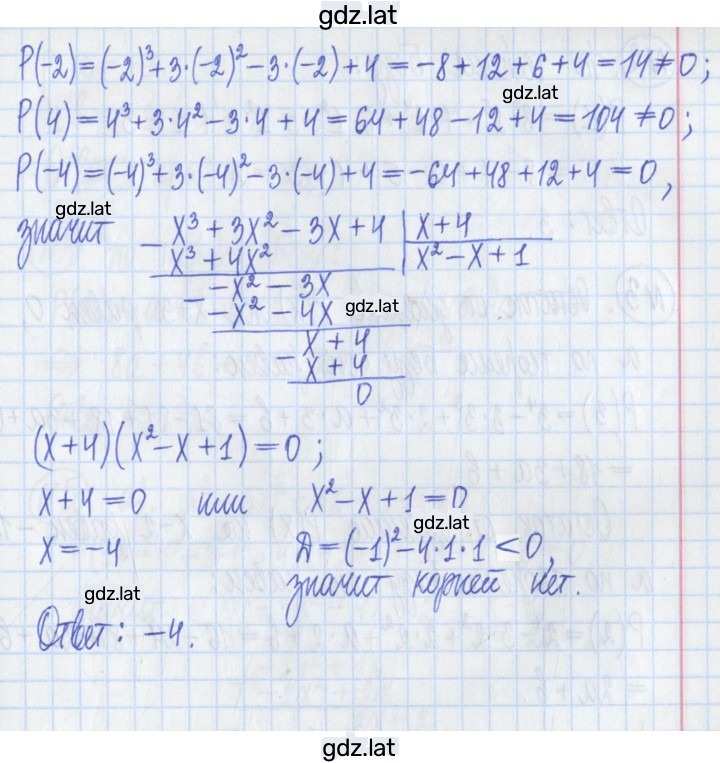 gdz.lat
P(-2)=(-2)³+3·(-2)²-3·(-2)+4=-8+12+6+4=14≠0;
gdz.lat
P(4)=4³+3·4²-3·4+4=64+48-12+4=104≠0;
P(-4)=(-4)³+3·(-4)²-3·(-4)+4=-64+48+12+4=0,
gdz.lat
значит
- x³+3x²-3x+4 | x+4
x³+4x² | x²-x+1
- -x²-3x
-x²-4x gdz.lat
- x+4
x+4
0
(x+4)(x²-x+1)=0;
x+4=0 или x²-x+1=0
gdz.lat
x=-4 Д=(-1)²-4·1·1<0,
значит корней нет.
gdz.lat
Ответ: -4.
gdz.lat